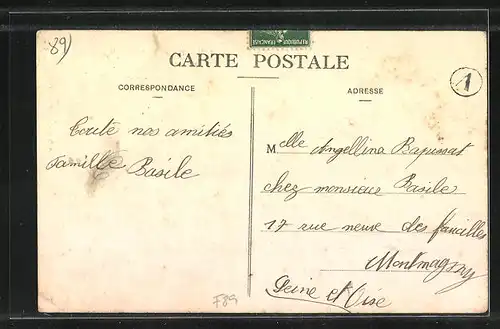 89)
REPUBLIQUE FRANÇAISE
CARTE POSTALE
1
CORRESPONDANCE
ADRESSE
Toute nos amitiés
Famille Basile
Melle Angellina
chez monsieur Basile
17 rue neuve des faucilles
Montmagny
Seine et Oise
F89